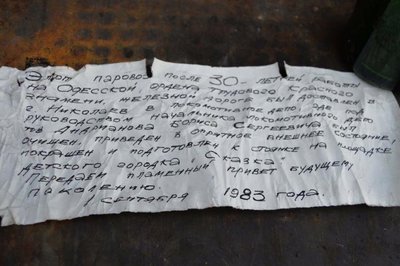 Этот паровоз после 30 летней работы
на Одесской ордена Трудового Красного
знамени, железной дороге был доставлен в
г. Николаев в локомотивное депо, где под
руководством начальника локомотивного депо
тов Бориса Сергеевича был
очищен, приведен в опрятное внешнее состояние,
покрашен и подготовлен к стоянке на площадке
детского городка "Сказка".
Передаем пламенный привет будущему
поколению.
1 сентября 1983 года.